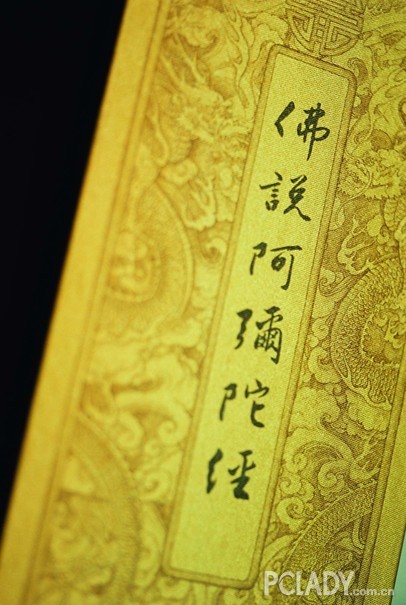 佛說阿彌陀經
PCLADY.com.cn